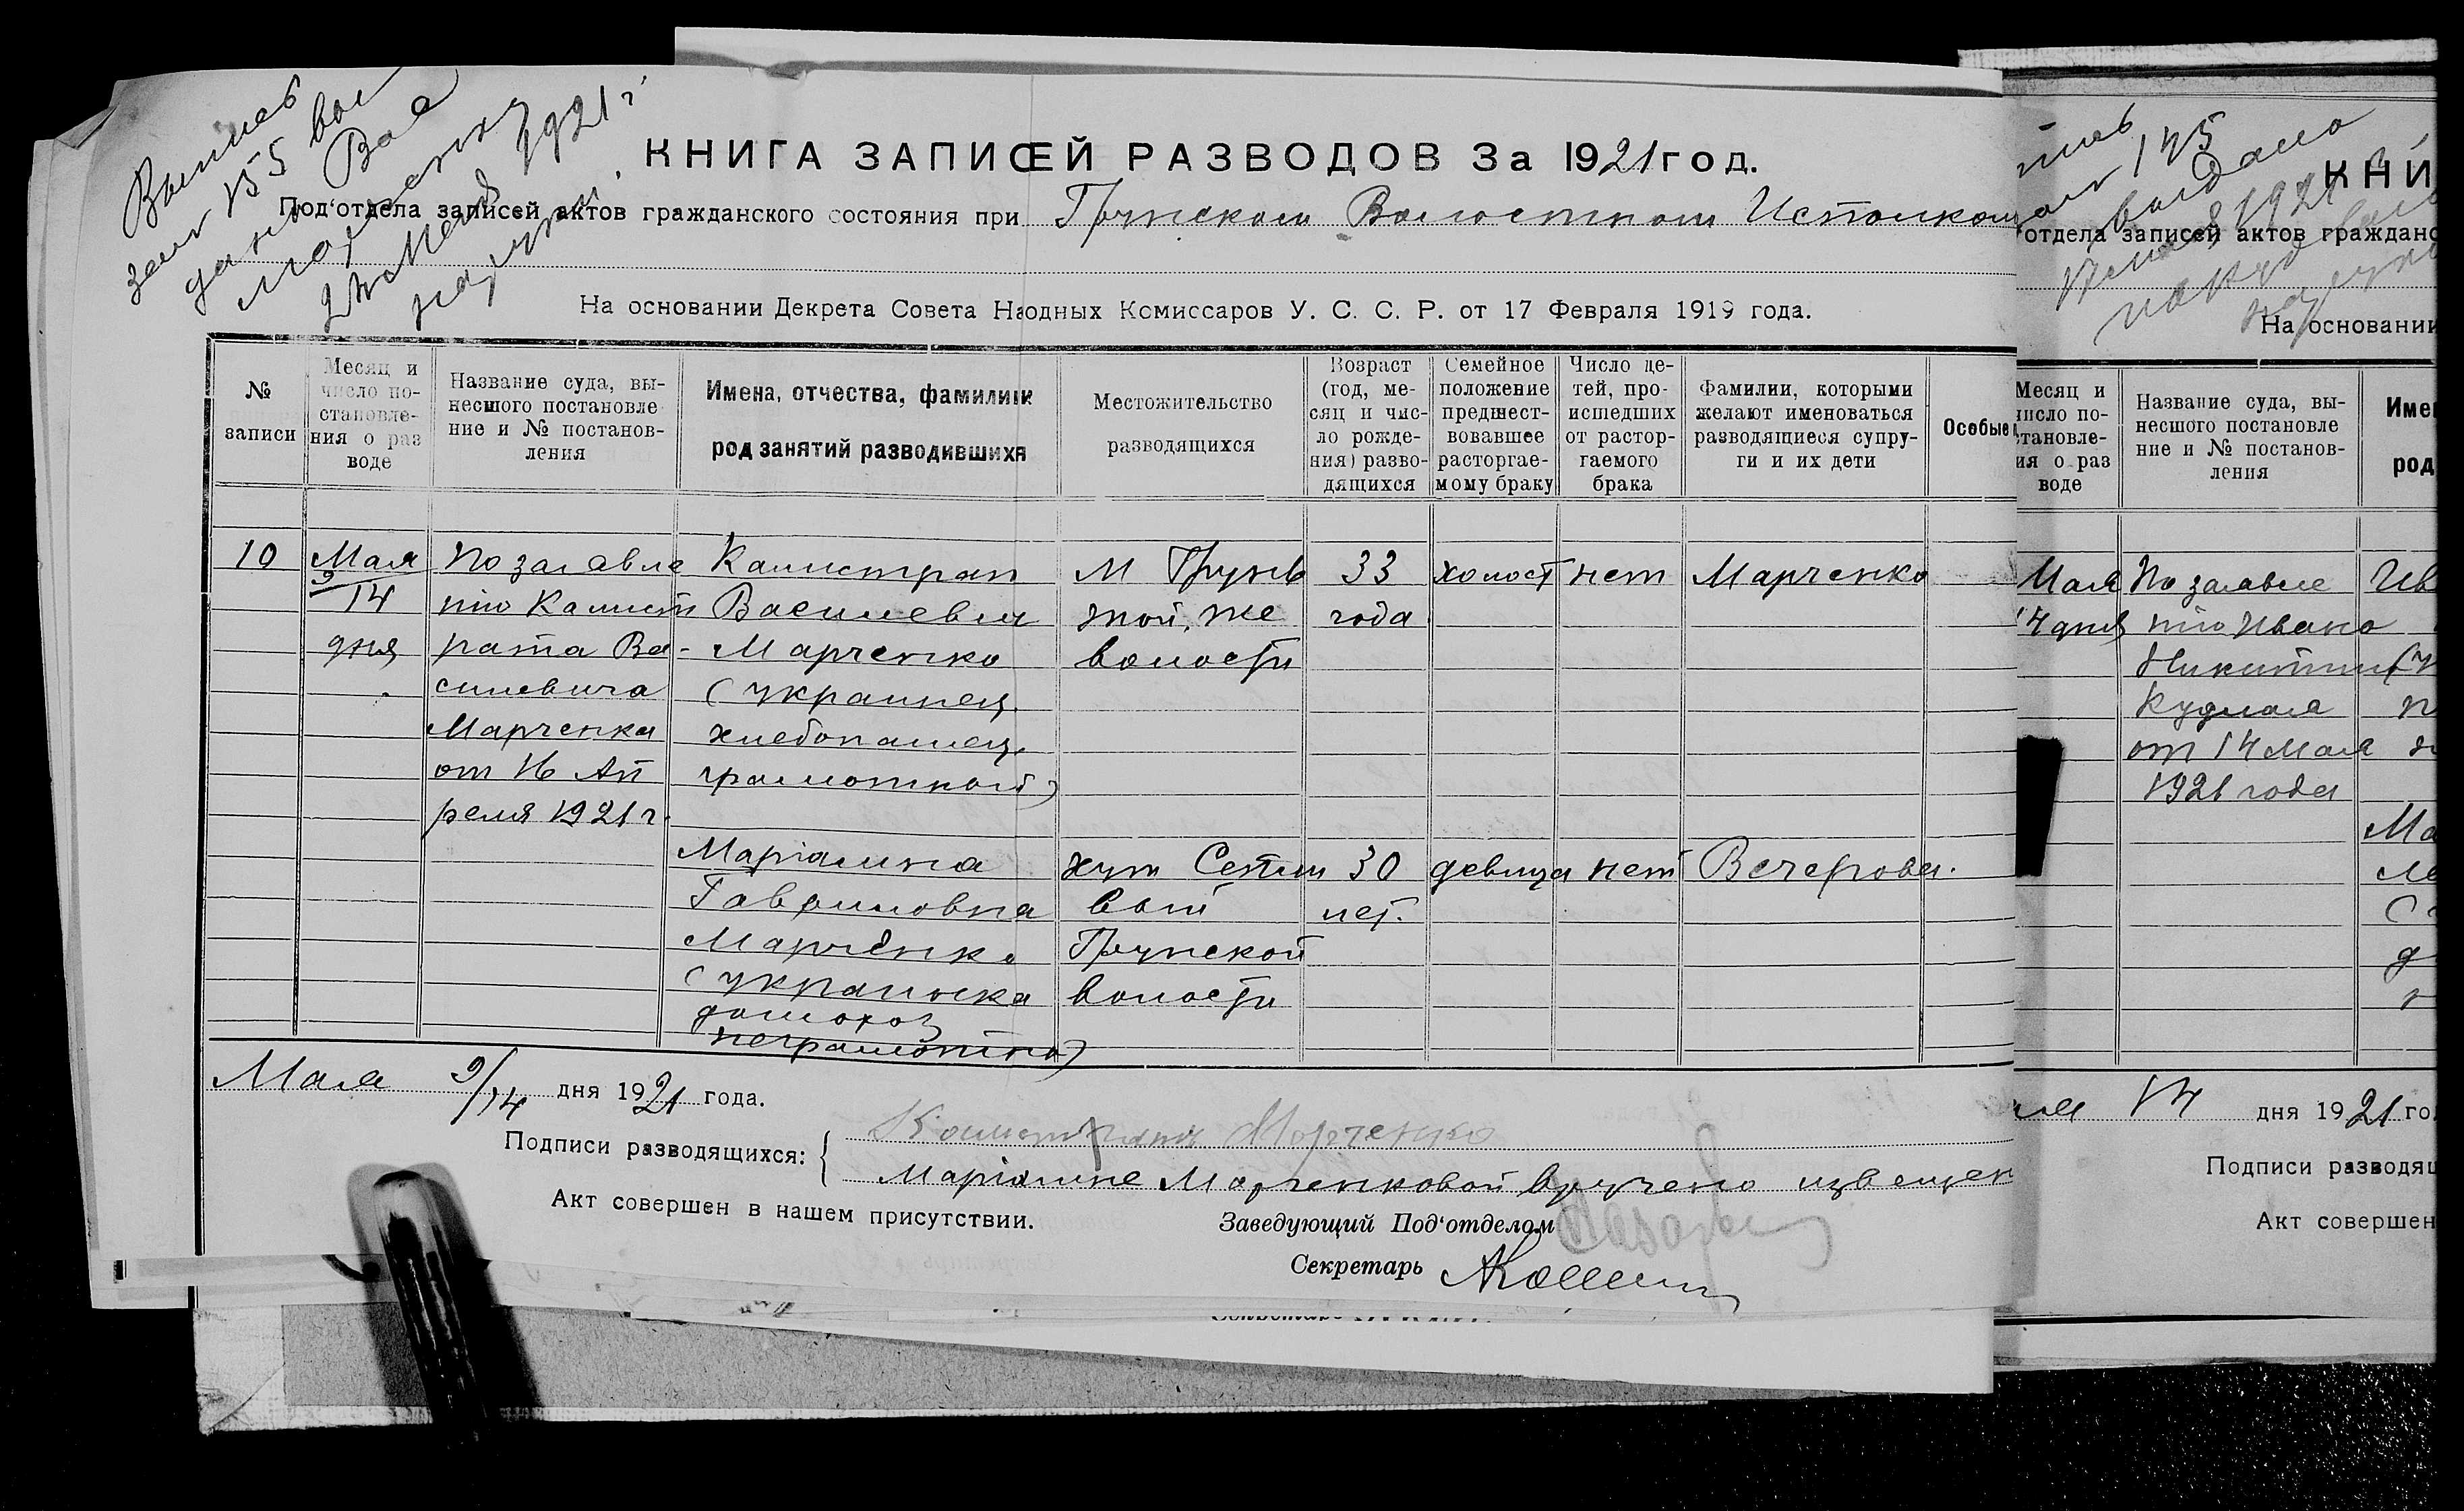 Выпись
за № 155 вы
дана
Марченку
9 Мая 1921 г
на руки.
КНИГА ЗАПИСЕЙ РАЗВОДОВ За 1921 год.
Под'отдела записей актов гражданского состояния при Грунском Волостном Исполкоме
На основании Декрета Совета Наодных Комиссаров У. С. С. Р. от 17 Февраля 1919 года.
№ записи
Месяц и число по-
становле-
ния о раз
воде
Название суда, вы-
несшого постановле
ние и № постанов-
ления
Имена, отчества, фамилии и
род занятий разводившихя
Местожительство
разводящихся
Возраст
(год, ме-
сяц и чис-
ло рожде-
ния) разво-
дящихся
Семейное
положение
предшест-
вовавшее
расторгае-
мому браку
Число де-
тей, про-
исшедших
от растор-
гаемого
брака
Фамилии, которыми
желают именоваться
разводящиеся супру-
ги и их дети
Особые
10
Мая
9/14
дня
По заявле
нию Калист
рата Ва-
силевича
Марченка
от 16 Ап
реля 1921 г.
Калистрат
Василевич
Марченко
(украинец
хлебопашец,
грамотный)
М Грунь
той, же
волости
33
года
холост
нет
Марченко
Маріамна
Гавриловна
Марченко
(украинка
домохоз
неграмотна)
хут Сетны
вый
Грунской
волости
30
лет.
девица
нет
Вечерова.
Мая 9/14 дня 1921 года.
Подписи разводящихся:
Калистрат Марченко
Маріамне Марченковой вручено извещен
Акт совершен в нашем присутствии.
Заведующий Под'отделом
Секретарь
145
1921
КНИ
отдела записей актов гражданс
На основании
Месяц и
число по-
становле-
ия о раз
воде
Название суда, вы-
несшого постановле
ние и № постанов-
ления
Имен
род
Мая
14 дня
По заявле
нию Ивана
Никитин
Кудлая
от 14 Мая
1921 года
Ив
Ма
14 дня 1921 го
Подписи разводящ
Акт совершен